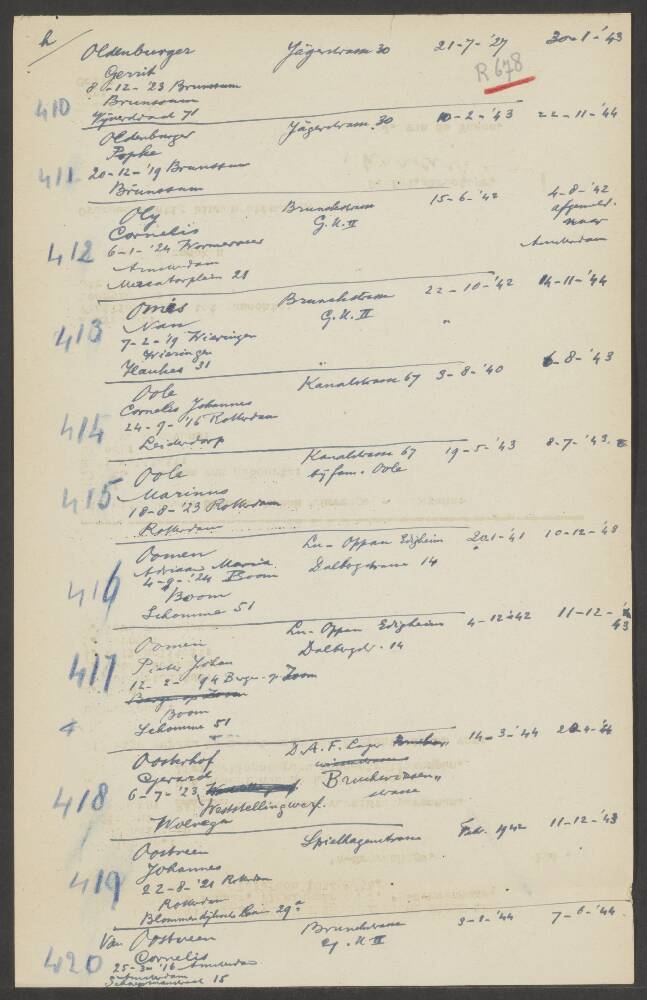 h
Oldenburger Jägerstrasse 30 21-7-'27 30-1-'43
Gerrit R 678
8-12-'23 Brunssum
Brunssum
410 71
Oldenburger Jägerstrasse 30 10-2-'43 22-11-'44
Popke
411 20-12-'19 Brunssum
Brunssum
Oly Brunckstrasse 15-6-'42 4-8-'42
Cornelis G.U. II afgemeld.
412 6-1-'24 Wormerveer naar
Amsterdam Amsterdam
Mercatorplein 21
Omes Brunckstrasse 22-10-'42 14-11-'44
Nan G.U. II "
413 7-2-'19 Wieringen
Wieringen
Haukes 31
Oole Kanalstrasse 67 3-8-'40 6-8-'43
Cornelis Johannes
414 24-9-'16 Rotterdam
Leiderdorp
Oole Kanalstrasse 67 19-5-'43 8-7-'43.
Marinus bij fam. Oole
415 18-8-'23 Rotterdam
Rotterdam
Oomen Lu-Oppau Edigheim 10-12-'43
Adriaan Maria 14
416 4-9-'24 Boom
Boom
Schomme 51
Oomen Lu-Oppau Edigheim 4-12-'42 11-12-'43
Pieter Johan 14
417 12-2-'94 Berg-op-Zoom
Berg op Zoom
Boom
Schomme 51
Oosterhof D.A.F. Lager 14-3-'44
Gerard
418 6-7-'23
Weststellingwerf.
Wolvega
Oostveen Spielhagenstrasse Feb. 1942 11-12-'43
Johannes
419 22-8-'21 Rotterdam
Rotterdam
29a
Van Oostveen Brunckstrasse 7-6-'44.
Cornelis G.U. II
420 25-3-'16 Amsterdam
Amsterdam
15